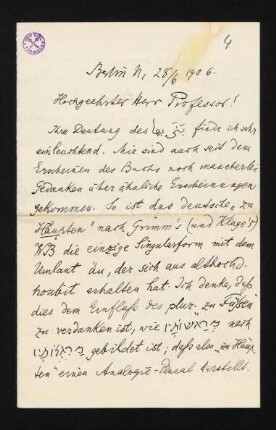 4
Berlin N, 28/6 1906.
Hochgeehrter Herr Professor!
Ihre Deutung des finde ich sehr
einleuchtend. Mir sind auch seit dem
Erscheinen des Buchs noch mancherlei
Gedanken über ähnliche Erscheinungen
gekommen. So ist das deutsche „zu
Häupten" nach Grimm's (und Kluge's)
WB die einzige Singularform mit dem
Umlaut äu, der sich aus althochd.
houbit erhalten hat. Ich denke, daß
dies dem Einfluß des plur. „zu Füßen"
zu verdanken ist, wie nach
gebildet ist; daß also „zu Häup-
ten" einen Analogie-Plural darstellt.